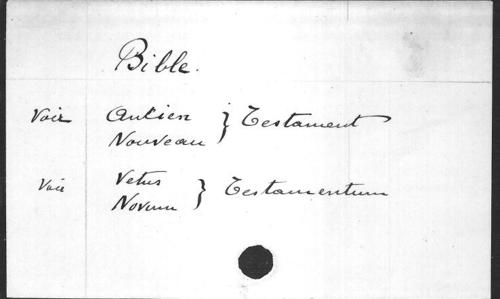 Bible.
Voir Ancien } Testament
Nouveau
Voir Vetus } Testamentum
Novum